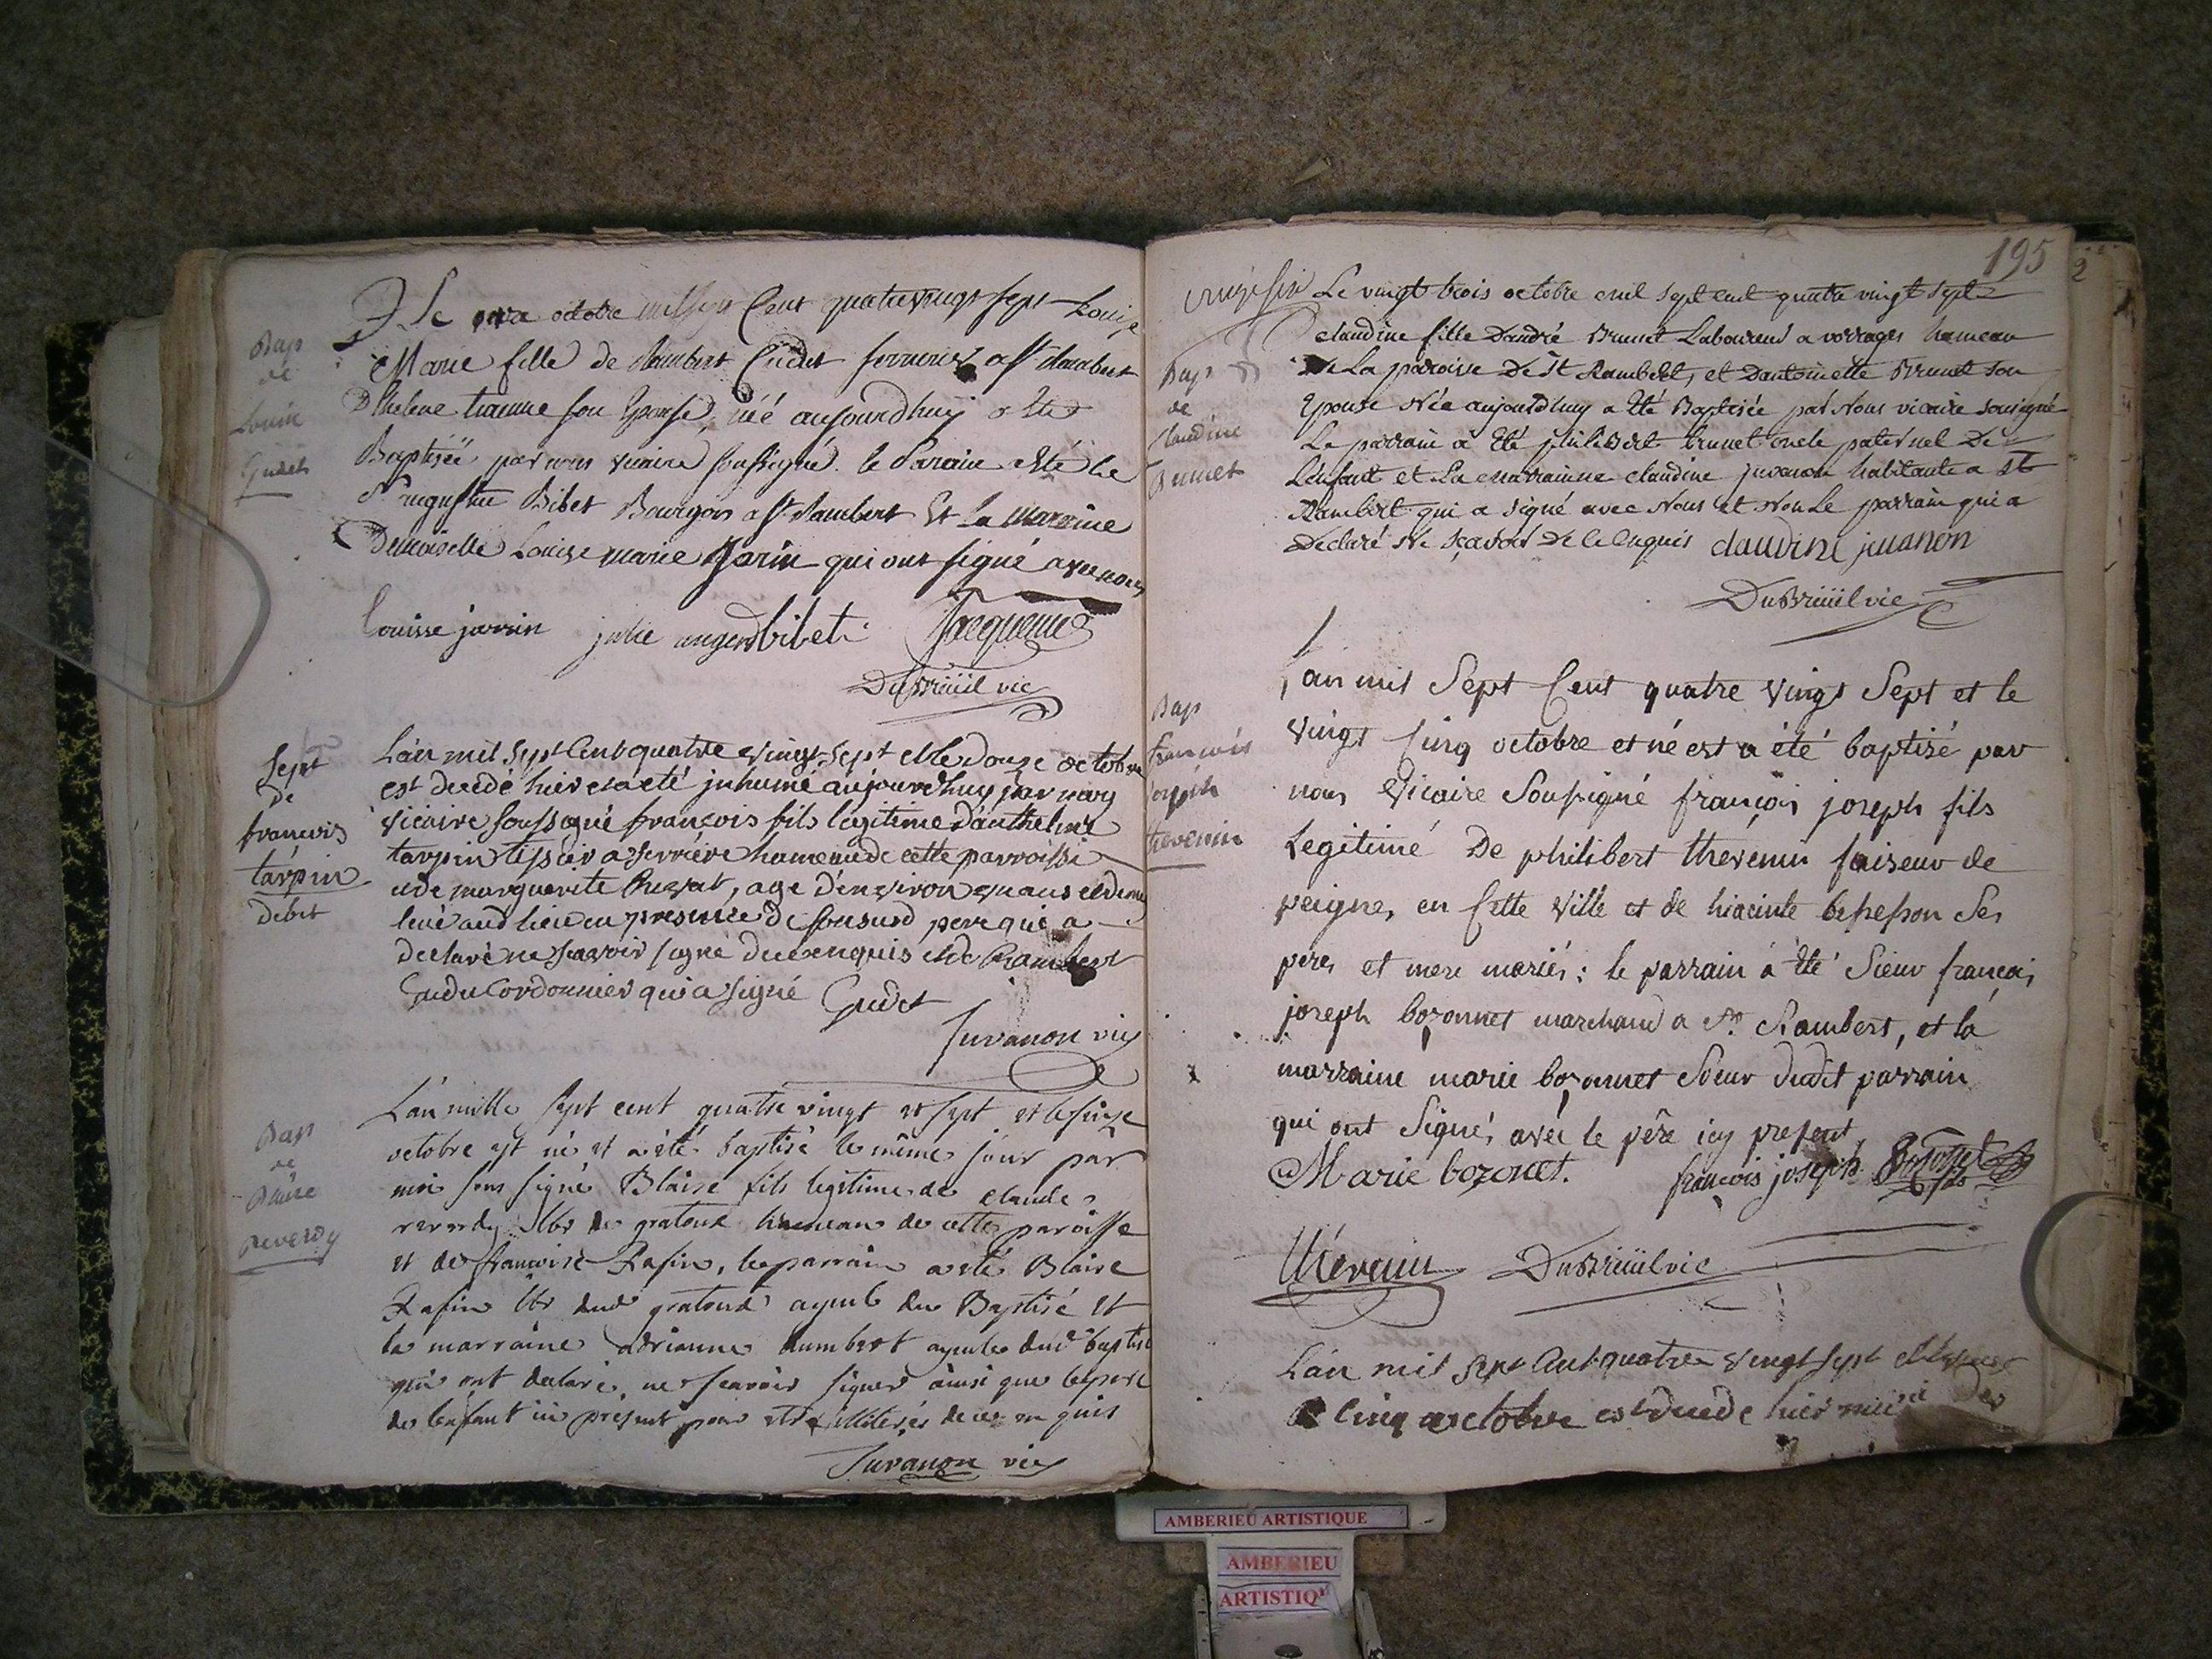 Bap
de
Louise
Gudet
Le onze octobre mil sept Cent quatrevingt sept Louise
Marie fille de Rambert Gudet serrurier a st Rambert
& helene tranne son Epouse, née aujourdhuy a Eté
Baptisée par nous vicaire soussigné. le Parain a Eté le
Sr augustin Bibet Bourgois a st Rambert Et la Marraine
Demoiselle Louise marie Jarin qui ont signé avec nous
Louisse jarrin julie bibet Jacquemet
DuBreüil vic
Sept
De
francois
tarpin
debet
L'an mil Sept Cent quatre vingt sept et le douze octobre
est decedé hier et a eté inhumé aujourdhuy par nous
vicaire soussigné francois fils légitime d'anthelme
tarpin tissier a serriere hameau de cette parroisse
et de marguerite Cruzat, age d'environ ans et demi
levé aud lieu en presence de son susd pere qui a
declaré ne scavoir signé de ce enquis et de Rambert
Gudet Cordonnier qui a signé Gudet
Juvanon vic
Bap
de
Blaise
Reverdy
L'an mille sept cent quatre vingt et sept et le seize
octobre est né et a été baptisé le même jour par
moi sous signé Blaise fils legitime de claude
reverdy lbr de gratoux hameau de cette paroisse
et de francoise Rafin, le parrain a eté Blaise
Rafin lbr dud gratoux ayeul du Baptisé et
la marraine adrianne humbert ayeule dud baptisé
qui ont declaré ne scavoir signer ainsi que le pere
de l'enfant ici present pour etre illiterés de ce en quis
Juvanon vic
195
2
Bap
de
Claudine
Brunet
Le vingt trois octobre mil sept cent quatre vingt sept
claudine fille D'andré Brunet Laboureur a vorrages hameau
de La paroisse De St Rambert, et D'antoinette Brunet son
Epouse Née aujourd'huy a Eté Baptisée par Nous vicaire sousigné
Le parrain a Eté philibert brunet oncle paternel De
L'enfant et La marrainne claudine juvanon habitante a St
Rambert qui a signé avec Nous et Non Le parrain qui a
Declaré Ne sçavoir De ce Enquis claudine juuanon
DuBreüil vic
Bap
francois
joseph
thevenin
L'an mil Sept Cent quatre vingt Sept et le
vingt Cinq octobre et né est a été baptisé par
nous Vicaire Soussigné françois joseph fils
Legitime De philibert thevenin faiseur de
peignes en Cette Ville et de hiacinte besseson Ses
peres et mere mariés: le parrain a Eté Sieur françois
joseph bozonnet marchand a St. Rambert, et la
marraine marie bozonnet Soeur dudit parrain
qui ont Signés avec le père icy present,
Marie bozonet. françois joseph Bozonet
thévenin DuBreüil vic
L'an mil Sept Cent quatre vingt sept et le vingt
cinq octobre est decede hier